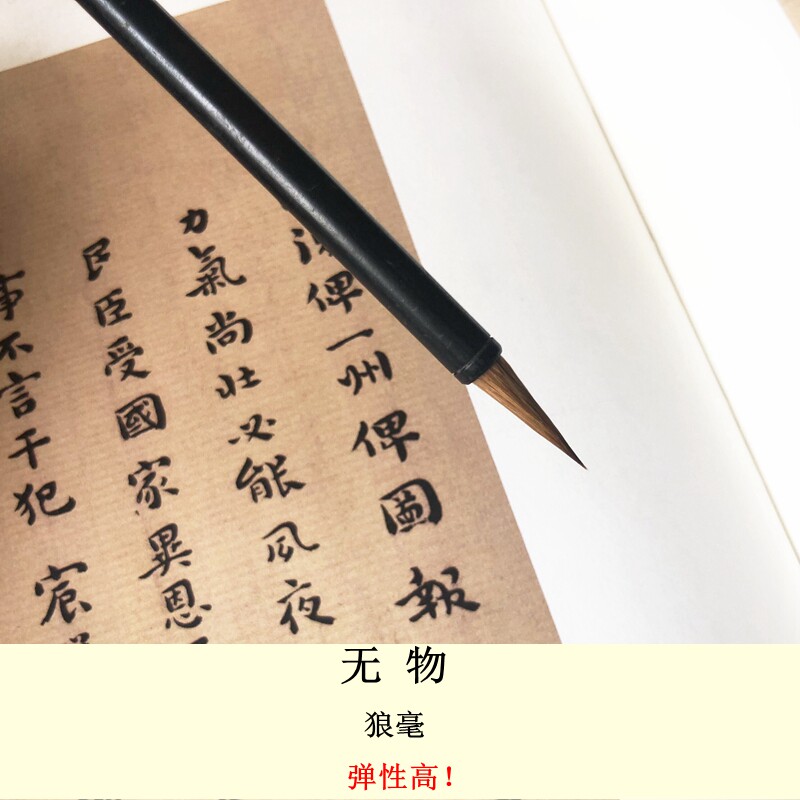 俾一州俾圖報
力氣尚壯必能夙夜
民臣受國家異恩
事不言干犯宸
无物
狼毫
弹性高！